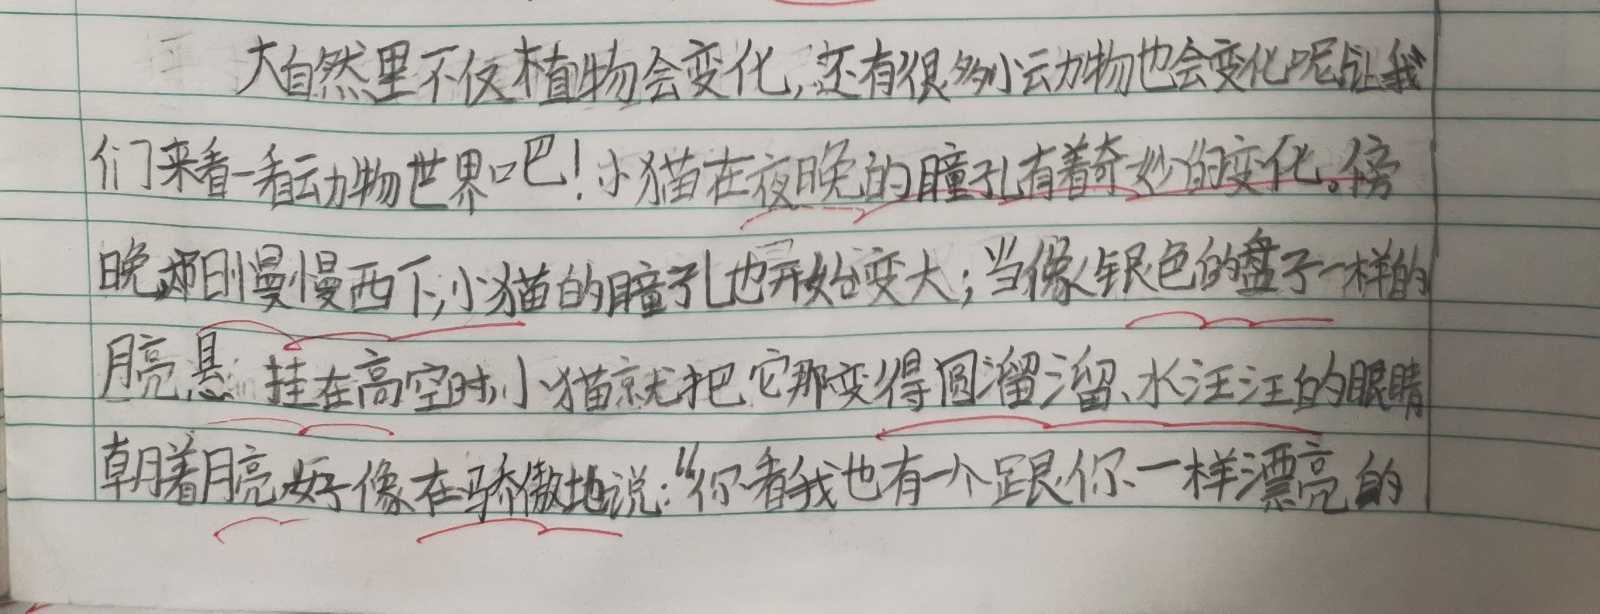 大自然里不仅植物会变化,还有很多小动物也会变化呢,让我
们来看一看动物世界吧!小猫在夜晚的瞳孔有着奇妙的变化。傍
晚,太阳慢慢西下,小猫的瞳孔也开始变大;当像银色的盘子一样的
月亮悬挂在高空时,小猫就把它那变得圆溜溜、水汪汪的眼睛
朝着月亮,好像在骄傲地说:“你看我也有一个跟你一样漂亮的